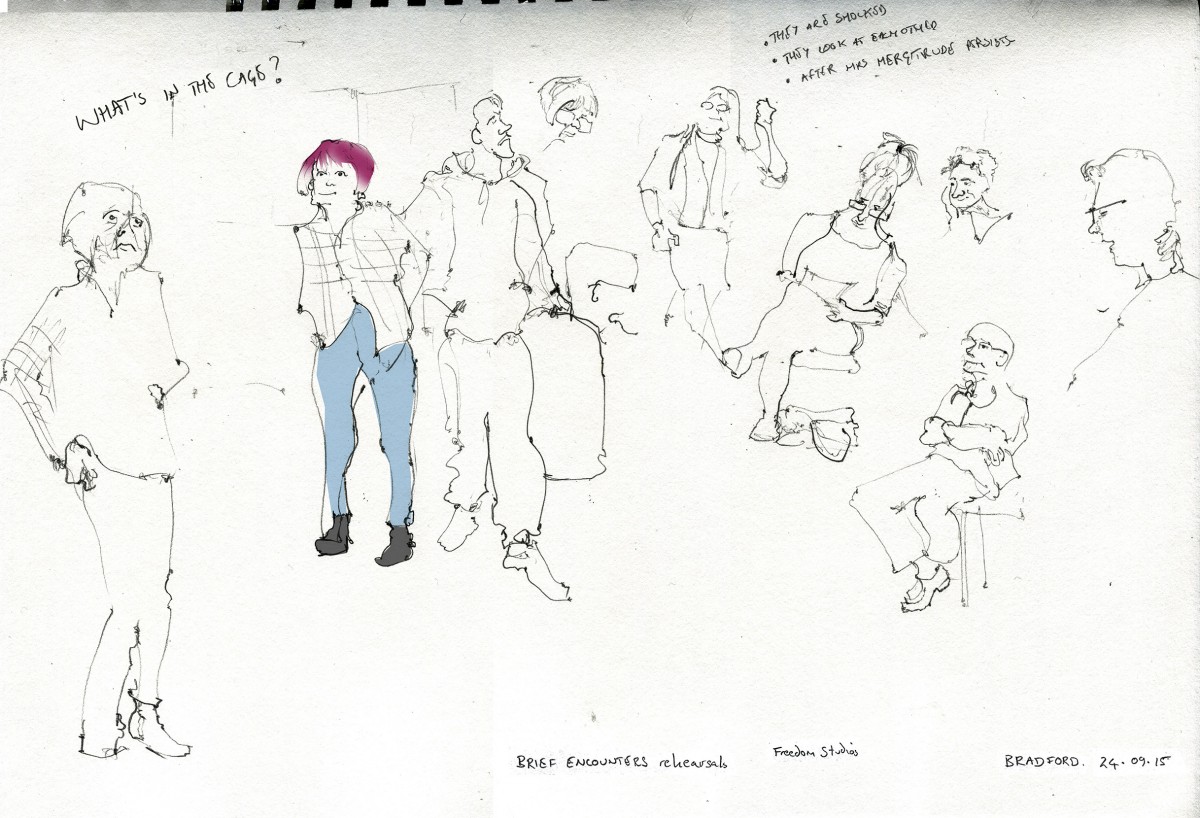 WHAT'S IN THE CAGE?
• THEY ARE SHOCKED
• THEY LOOK AT EACHOTHER
• AFTER MRS MERGTRUDE PERSISTS
BRIEF ENCOUNTERS rehearsals
Freedom Studios
BRADFORD. 24.09.15